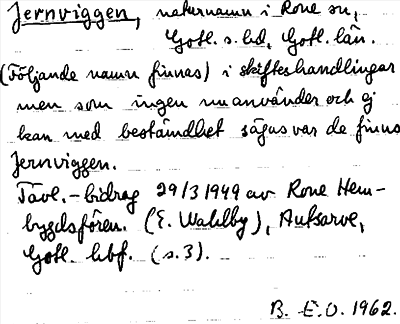 Jernviggen, naturnamn i Rone sn,
Gotl. s. hd, Gotl. län.
(Följande namn finnas) i skifteshandlingar
men som ingen nu använder och ej
kan med bestämdhet sägas var de finns
Jernviggen.
Tävl.-bidrag 29/3 1949 av Rone Hem-
bygdsfören. (E. Wahlby), Autsarve,
Gotl. hbf. (s.3).
B. E. O. 1962.